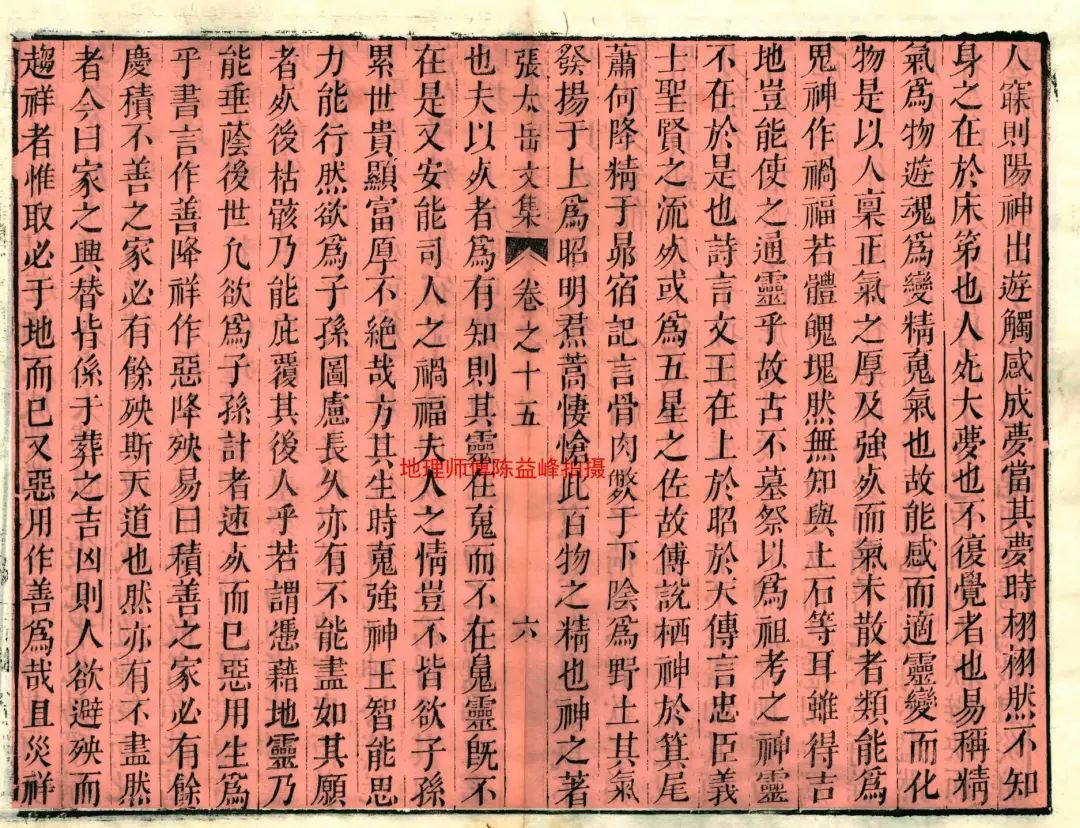 人寐則陽神出遊觸感成夢當其夢時栩栩然不知
身之在於床第也人死大夢也不復覺者也易稱精
氣爲物遊魂爲變精䰟氣也故能感而適靈變而化
物是以人稟正氣之厚及強死而氣未散者類能爲
鬼神作禍福若體魄塊然無知與土石等耳雖得吉
地豈能使之通靈乎故古不墓祭以爲祖考之神靈
不在於是也詩言文王在上於昭於天傳言忠臣義
士聖賢之流死或爲五星之佐故傅說栖神於箕尾
蕭何降精于昴宿記言骨肉斃于下陰爲野土其氣
發揚于上爲昭明焄蒿悽愴此百物之精也神之著
張太岳文集 卷之十五 六
也夫以死者爲有知則其靈在䰟而不在鬼靈旣不
在是又安能司人之禍福夫人之情豈不皆欲子孫
累世貴顯富厚不絶哉方其生時䰟強神王智能思
力能行然欲爲子孫圖慮長久亦有不能盡如其願
者死後枯骸乃能庇覆其後人乎若謂憑藉地靈乃
能垂蔭後世允欲爲子孫計者速死而已惡用生爲
乎書言作善降祥作惡降殃易曰積善之家必有餘
慶積不善之家必有餘殃斯天道也然亦有不盡然
者今曰家之興替皆係于葬之吉凶則人欲避殃而
趨祥者惟取必于地而已又惡用作善爲哉且災祥
地理师傅陈益峰拍摄